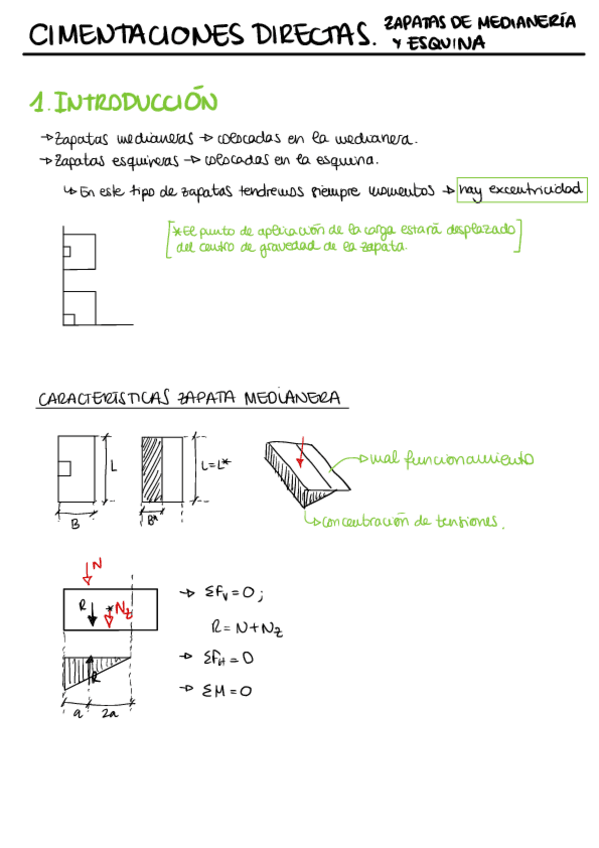 CIMENTACIONES DIRECTAS. ZAPATAS DE MEDIANERÍA
Y ESQUINA
1. INTRODUCCIÓN
→ Zapatas medianeras → colocadas en la medianera.
→ Zapatas esquineras → colocadas en la esquina.
↳ En este tipo de zapatas tendremos siempre momentos → hay excentricidad
[*El punto de aplicación de la carga estará desplazado
del centro de gravedad de la zapata.]
CARACTERÍSTICAS ZAPATA MEDIANERA
L
L=L*
→ mal funcionamiento
B
B*
↳ concentración de tensiones.
N
R
*Nz
→ ΣFv = 0;
R = N + Nz
→ ΣFH = 0
R
→ ΣM = 0
a
2a